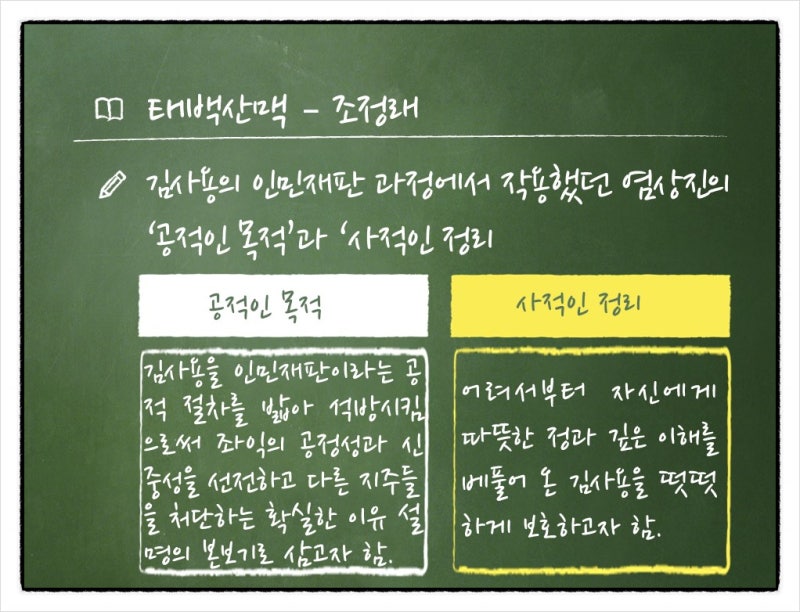 태백산맥 - 조정래
김사용의 인민재판 과정에서 작용했던 염상진의
‘공적인 목적’과 ‘사적인 정리
공적인 목적
사적인 정리
김사용을 인민재판이라는 공
적 절차를 밟아 석방시킴
으로써 좌익의 공정성과 신
중성을 선전하고 다른 지주들
을 처단하는 확실한 이유 설
명의 본보기로 삼고자 함.
어려서부터 자신에게
따뜻한 정과 깊은 이해를
베풀어 온 김사용을 떳떳
하게 보호하고자 함.